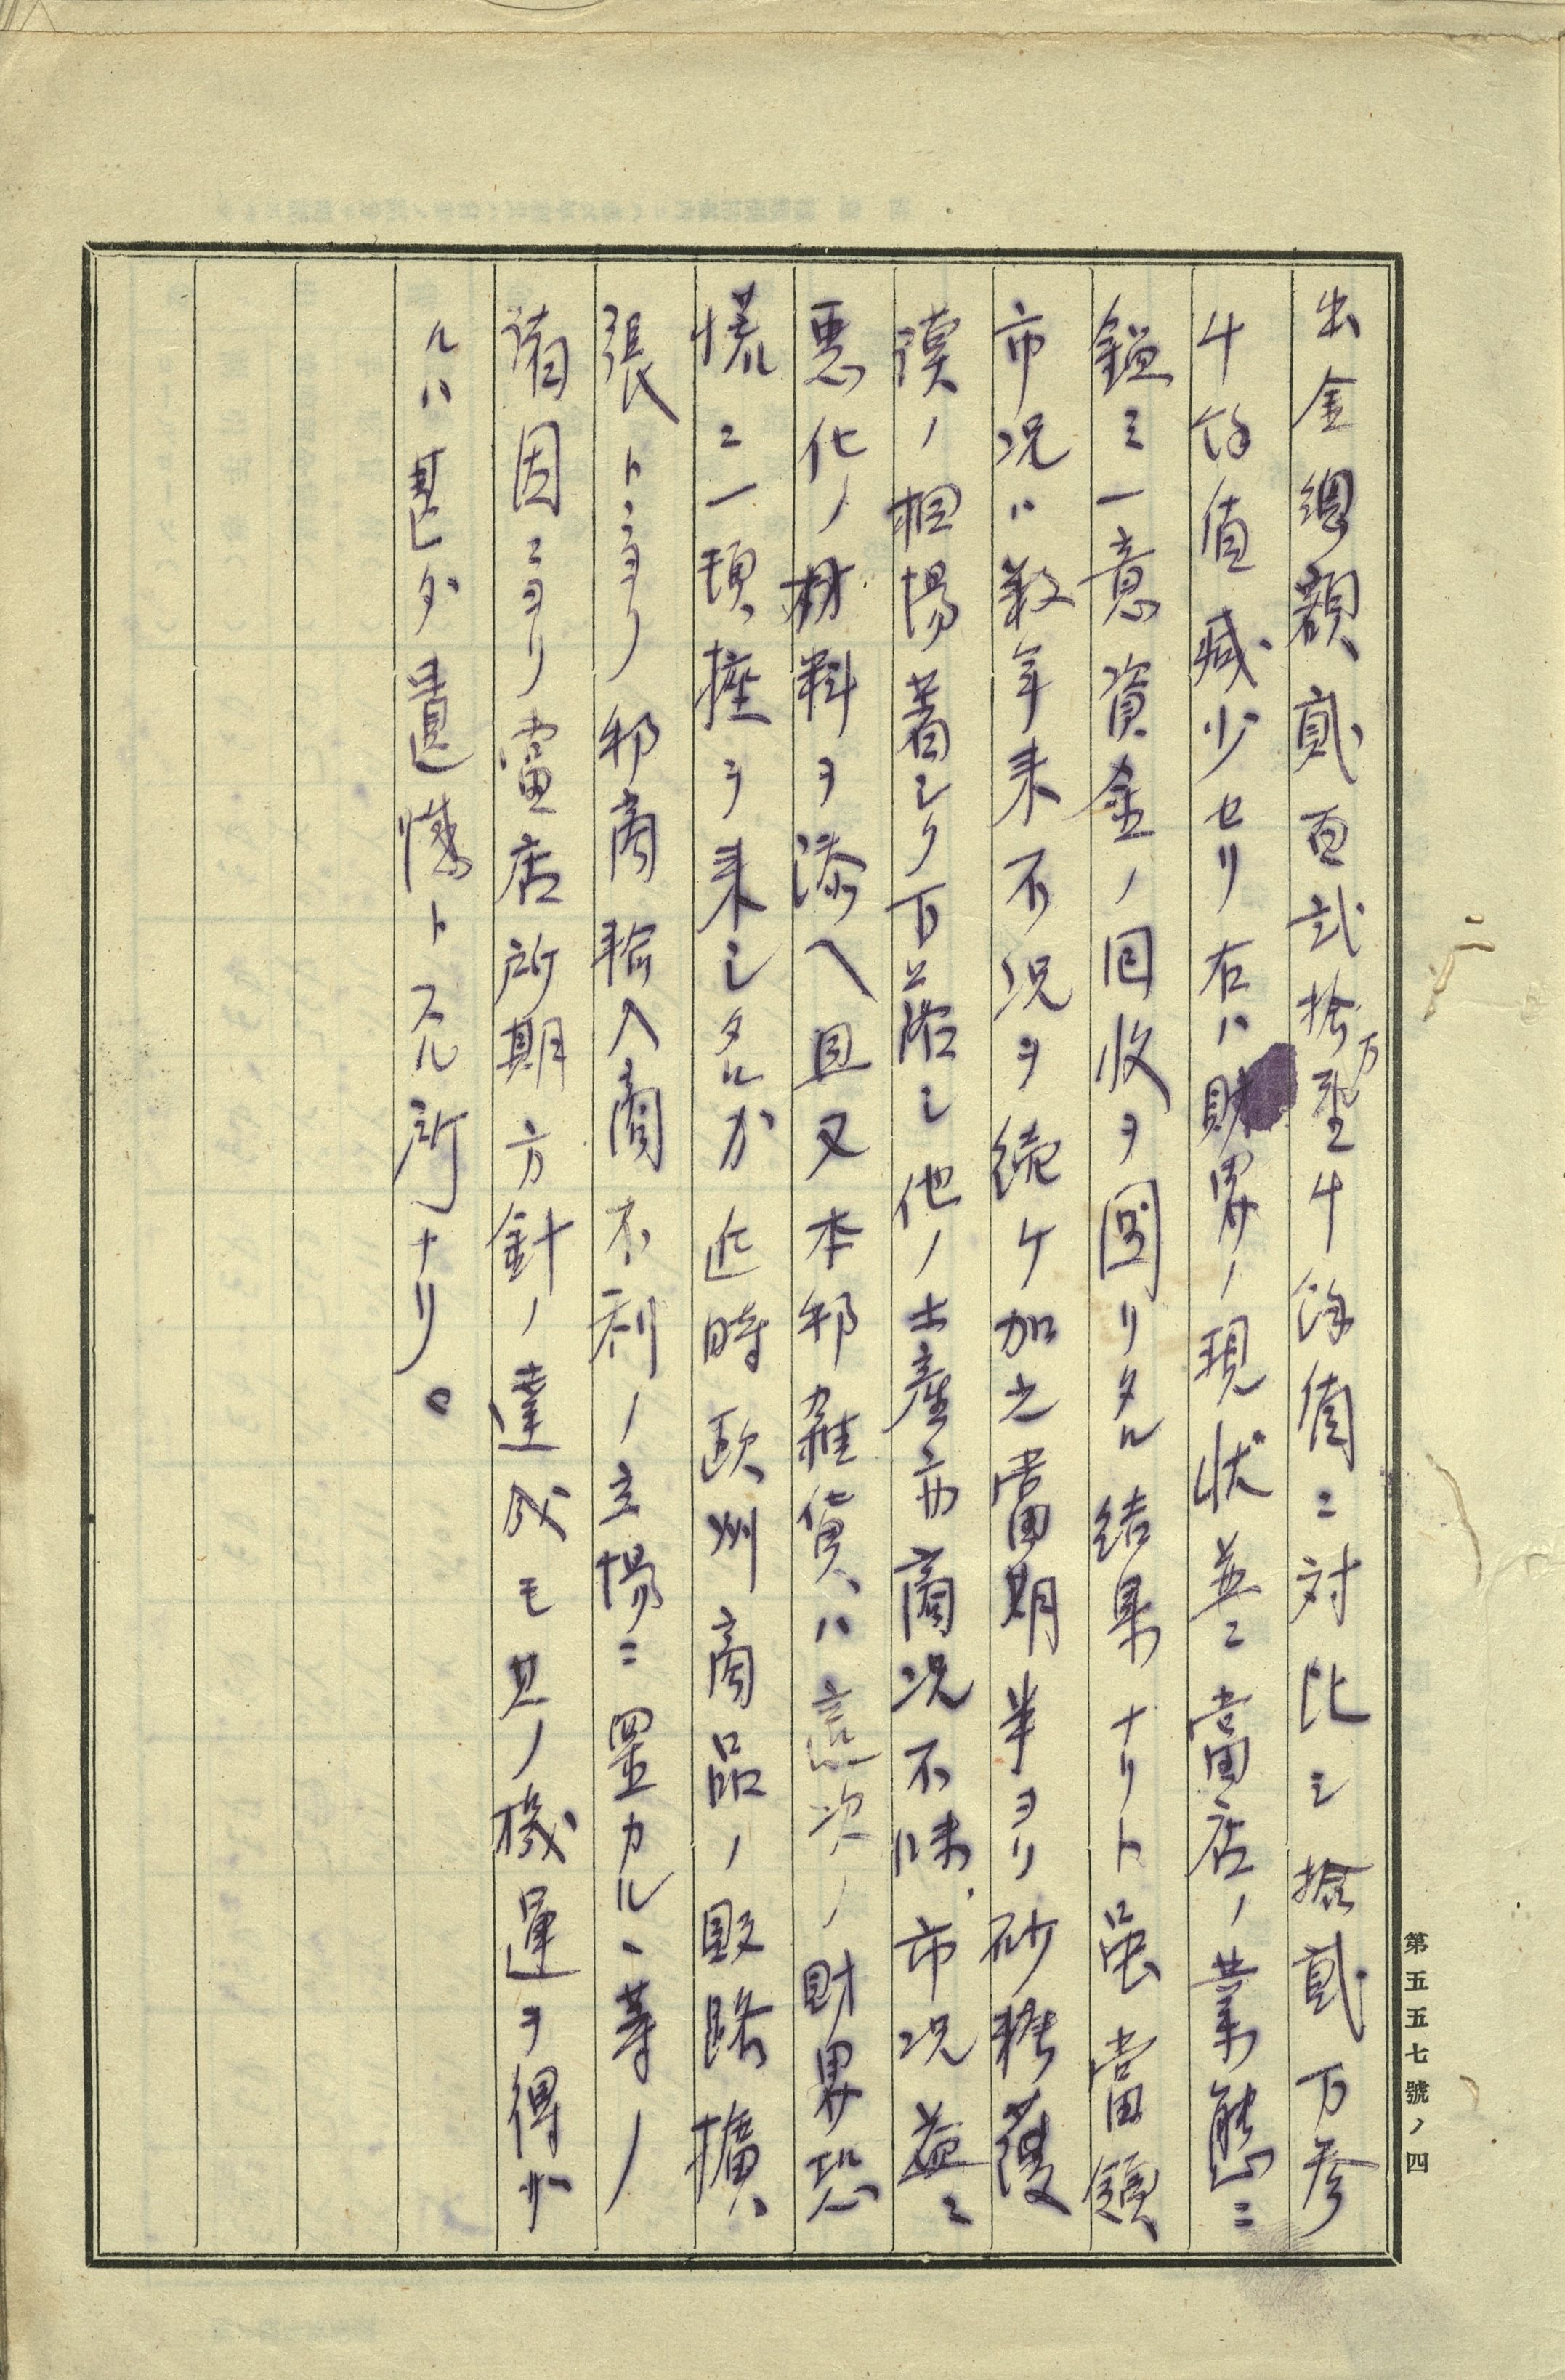 出金總額貳百貳拾壱万千餘値ニ対比シ拾貳万参
千餘値減少セリ右ハ財界ノ現状並ニ當店ノ業態ニ
鑑ミ一意資金ノ回收ヲ圖リタル結果ナリト虽當領
市況ハ数年来不況ヲ続ケ加之當期半ヨリ砂糖護
謨ノ相場著シク下落シ他ノ土産商商況不味、市況益々
悪化ノ材料ヲ添ヘ且又本邦雜貨ハ這次ノ財界恐
慌ニ一頓挫ヲ来シタルカ近時欧州商品ノ販路擴
張トヨリ邦商輸入商不利ノ立場ニ置カル、等ノ
諸因ニヨリ當店所期方針ノ達成モ其ノ機運ヲ得サ
ルハ甚ダ遺憾トスル所ナリ。
第五五七號ノ四